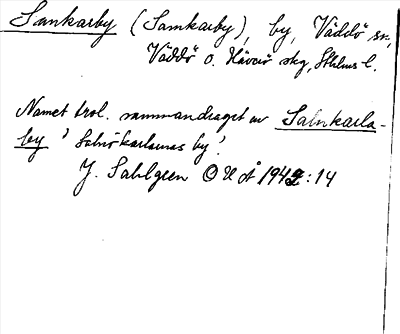 Sankarby (Samkarby), by, Väddö sn,
Väddö o. Häverö skg, Sthlms l.
Namnet trol. sammandraget av Salnkarla-
by 'Salnökarlarnas by'.
J. Sahlgren OUÅ 1942:14